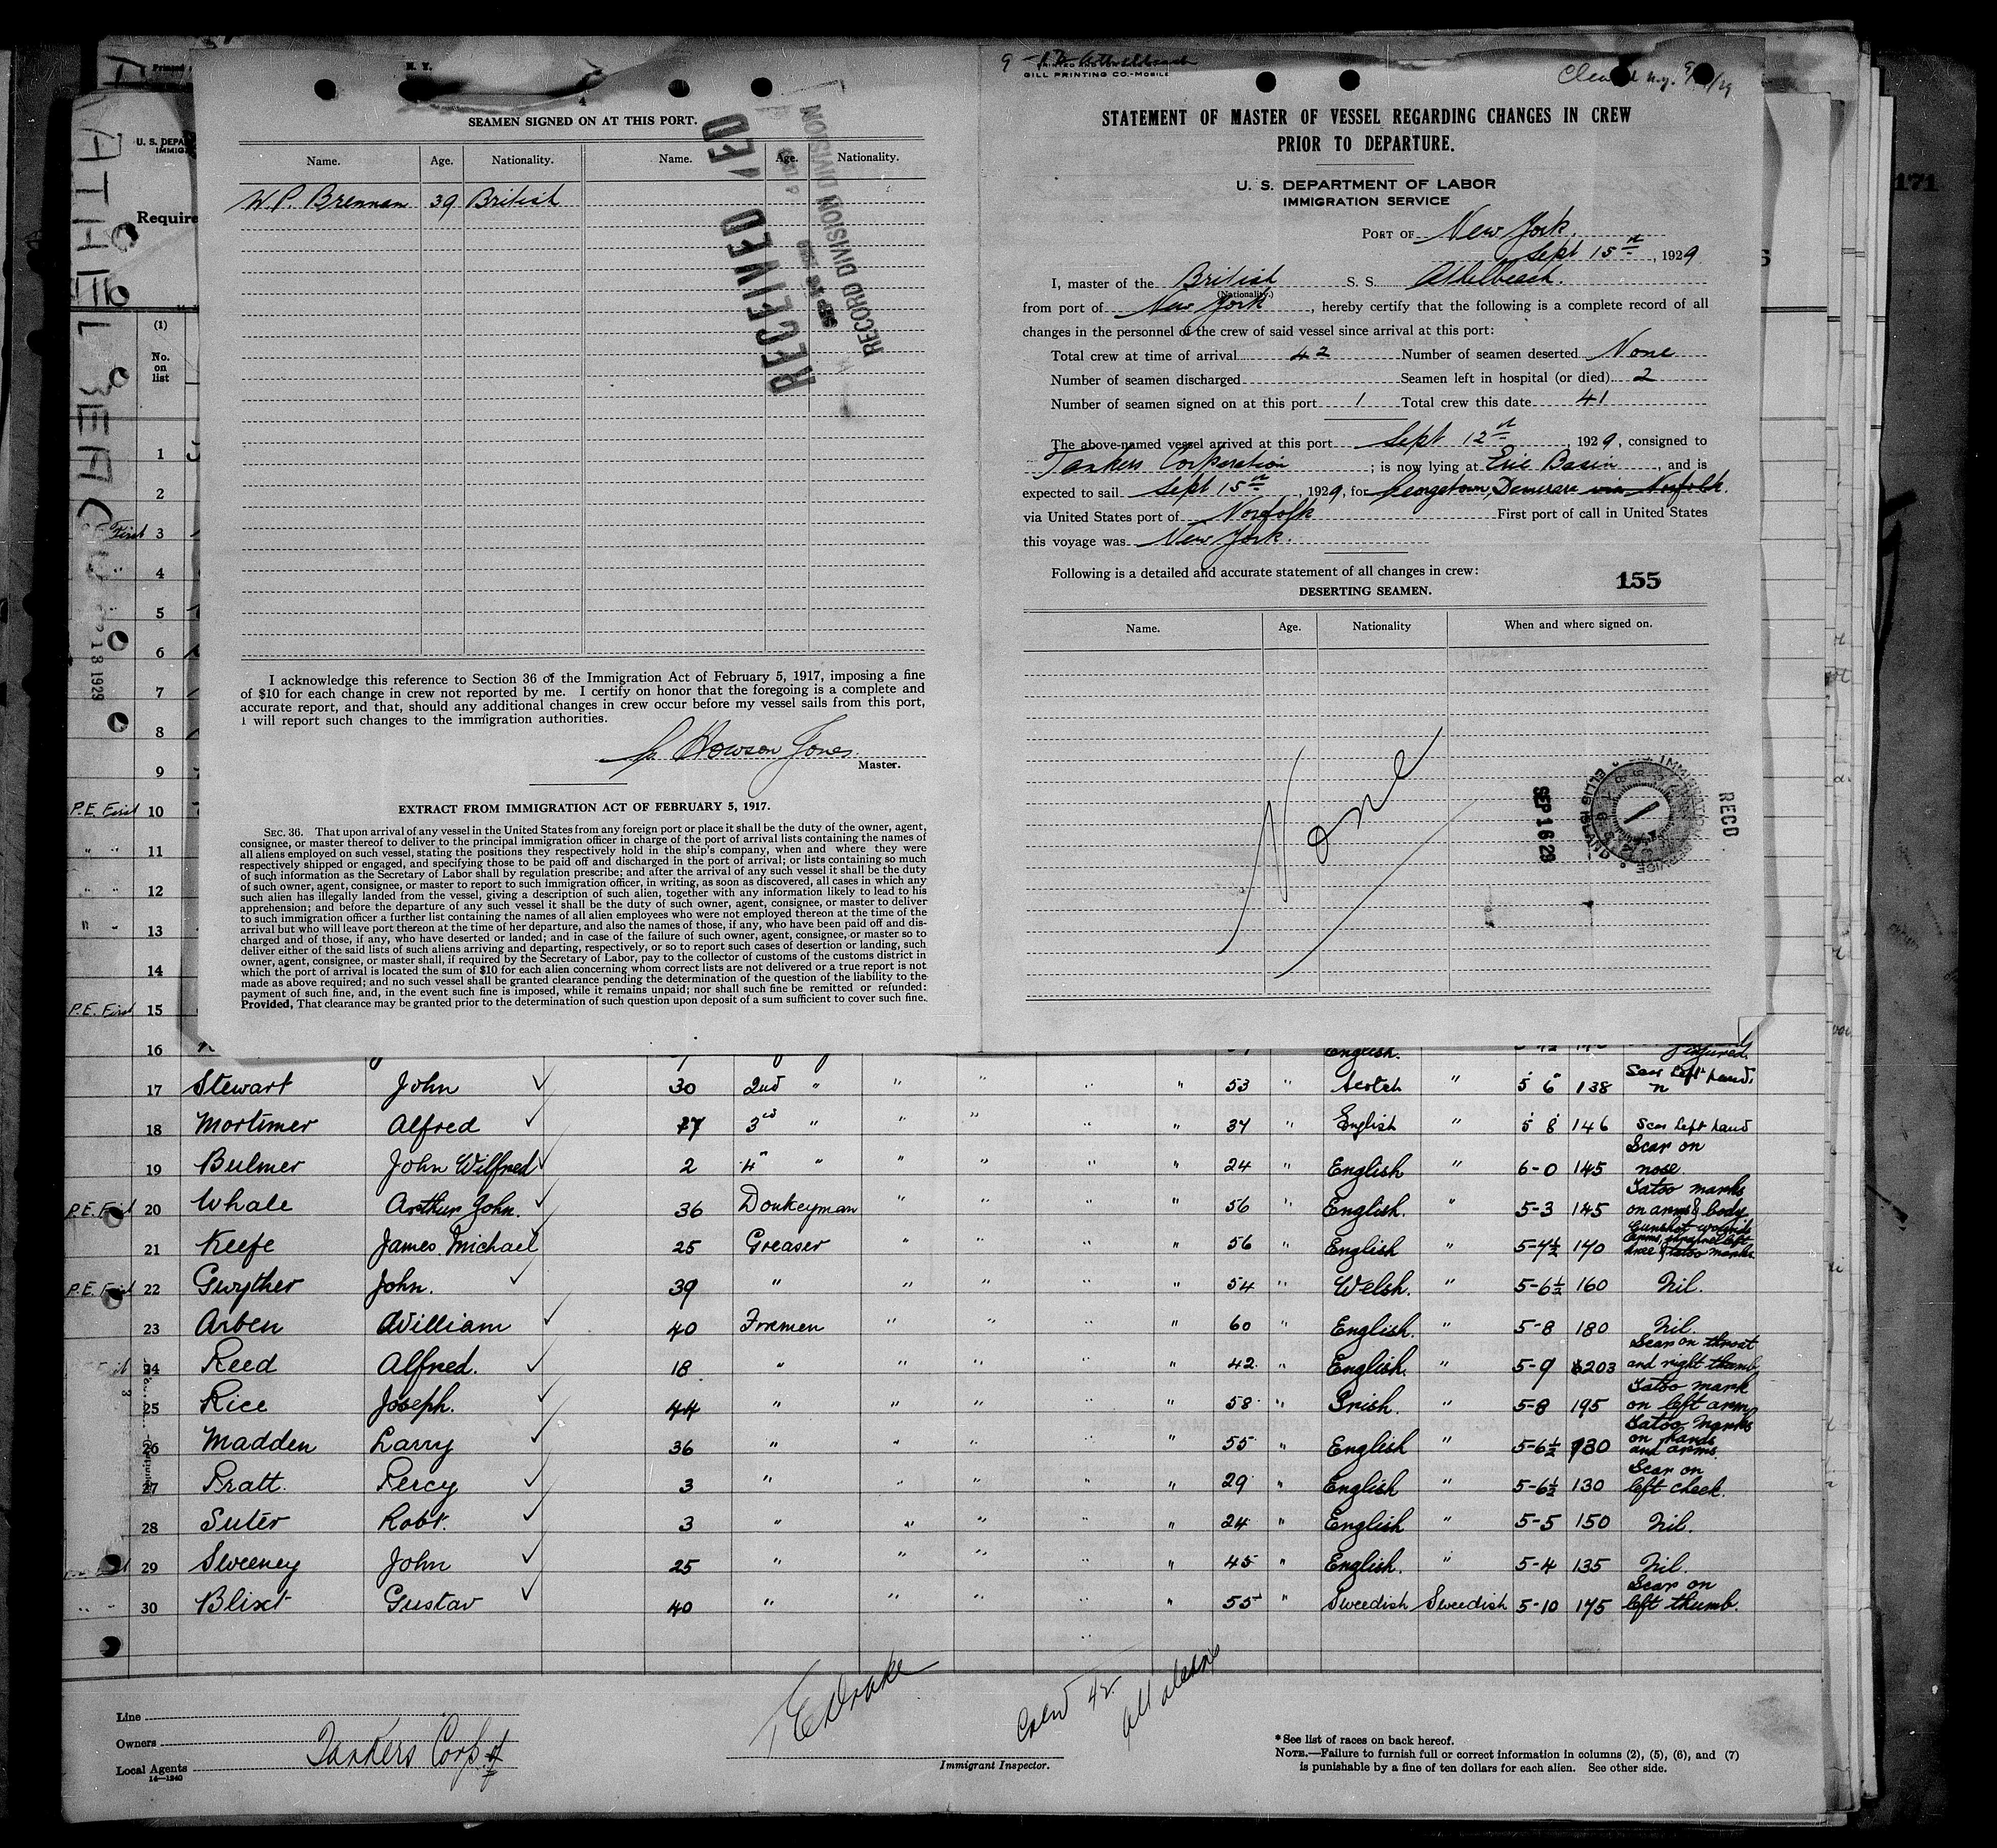 N. Y.
SEAMEN SIGNED ON AT THIS PORT.
Name. Age. Nationality. Name. Age. Nationality.
W.P. Brennan 39 British
RECEIVED
RECORD DIVISION
RECORD DIVISION
I acknowledge this reference to Section 36 of the Immigration Act of February 5, 1917, imposing a fine
of $10 for each change in crew not reported by me. I certify on honor that the foregoing is a complete and
accurate report, and that, should any additional changes in crew occur before my vessel sails from this port,
I will report such changes to the immigration authorities.
Howson Jones
Master.
EXTRACT FROM IMMIGRATION ACT OF FEBRUARY 5, 1917.
SEC. 36. That upon arrival of any vessel in the United States from any foreign port or place it shall be the duty of the owner, agent,
consignee, or master thereof to deliver to the principal immigration officer in charge of the port of arrival lists containing the names of
all aliens employed on such vessel, stating the positions they respectively hold in the ship's company, when and where they were
respectively shipped or engaged, and specifying those to be paid off and discharged in the port of arrival; or lists containing so much
of such information as the Secretary of Labor shall by regulation prescribe; and after the arrival of any such vessel it shall be the duty
of such owner, agent, consignee, or master to report to such immigration officer, in writing, as soon as discovered, all cases in which any
such alien has illegally landed from the vessel, giving a description of such alien, together with any information likely to lead to his
apprehension; and before the departure of any such vessel it shall be the duty of such owner, agent, consignee, or master to deliver
to such immigration officer a further list containing the names of all alien employees who were not employed thereon at the time of the
arrival but who will leave port thereon at the time of her departure, and also the names of those, if any, who have been paid off and dis-
charged and of those, if any, who have deserted or landed; and in case of the failure of such owner, agent, consignee, or master so to
deliver either of the said lists of such aliens arriving and departing, respectively, or so to report such cases of desertion or landing, such
owner, agent, consignee, or master shall, if required by the Secretary of Labor, pay to the collector of customs of the customs district in
which the port of arrival is located the sum of $10 for each alien concerning whom correct lists are not delivered or a true report is not
made as above required; and no such vessel shall be granted clearance pending the determination of the question of the liability to the
payment of such fine, and, in the event such fine is imposed, while it remains unpaid; nor shall such fine be remitted or refunded:
Provided, That clearance may be granted prior to the determination of such question upon deposit of a sum sufficient to cover such fine.
GILL PRINTING CO.-MOBILE
STATEMENT OF MASTER OF VESSEL REGARDING CHANGES IN CREW
PRIOR TO DEPARTURE.
U. S. DEPARTMENT OF LABOR
IMMIGRATION SERVICE
PORT OF New York.
Sept 15th, 1929
I, master of the British S. S. Athelbeach.
(Nationality.)
from port of New York, hereby certify that the following is a complete record of all
changes in the personnel of the crew of said vessel since arrival at this port:
Total crew at time of arrival 42 Number of seamen deserted None
Number of seamen discharged Seamen left in hospital (or died) 2
Number of seamen signed on at this port 1 Total crew this date 41
The above-named vessel arrived at this port Sept 12th, 1929, consigned to
Tankers Corporation; is now lying at Erie Basin, and is
expected to sail Sept 15th, 1929, for Georgetown, Demerara via Norfolk.
via United States port of Norfolk First port of call in United States
this voyage was New York.
Following is a detailed and accurate statement of all changes in crew:
155
DESERTING SEAMEN.
Name. Age. Nationality When and where signed on.
None
SEP 16 29
ELLIS ISLAND
RECD.
171
U. S. DEPA
IMMIG
Require
ATHEL BEACH
13 1929
(1)
No.
on
list
1
2
First 3
" 4
5
6
7
8
9
P.E. First 10
" " 11
" " 12
" " 13
14
P.E. First 15
16 English. injured
17 Stewart John 30 2nd " " " " " 53 " Scotch " 5 6 138 Scar left hand
18 Mortimer Alfred 3rd " " " " " 34 " English " 5 8 146 Scar left hand
19 Bulmer John Wilfred 2 4th " " " " " 24 " English " 6-0 145 Scar on nose
P.E. First 20 Whale Arthur John. 36 Donkeyman " " " " 56 " English. " 5-3 145 Tatoo marks on arms & body
21 Keefe James Michael 25 Greaser " " " " 56 " English " 5-4½ 140 Gunshot wounds arms, shrapnel left knee & tatoo marks
P.E. First 22 Gwyther John. 39 " " " " " 54 " Welsh. " 5-6½ 160 Nil.
23 Arben William 40 Firemen " " " " 60 " English. " 5-8 180 Nil.
24 Reed Alfred. 18 " " " " " 42 " English. " 5-9 203 Scar on throat and right thumb
25 Rice Joseph. 44 " " " " " 58 " Irish. " 5-8 195 Tatoo mark on left arm
26 Madden Larry 36 " " " " " 55 " English " 5-6½ 130 Tatoo Marks on hands and arms.
27 Pratt. Percy 3 " " " " " 29 " English " 5-6½ 130 Scar on left cheek.
28 Suter Robt. 3 " " " " " 24 " English " 5-5 150 Nil.
29 Sweeney John 25 " " " " " 45 " English. " 5-4 135 Nil.
" " 30 Blixt Gustav 40 " " " " " 55 " Sweedish Sweedish 5-10 175 Scar on left thumb.
Line
Owners
Tankers Corp.
Local Agents
14—1240
Drake
Immigrant Inspector.
42
All aliens
*See list of races on back hereof.
NOTE.—Failure to furnish full or correct information in columns (2), (5), (6), and (7)
is punishable by a fine of ten dollars for each alien. See other side.